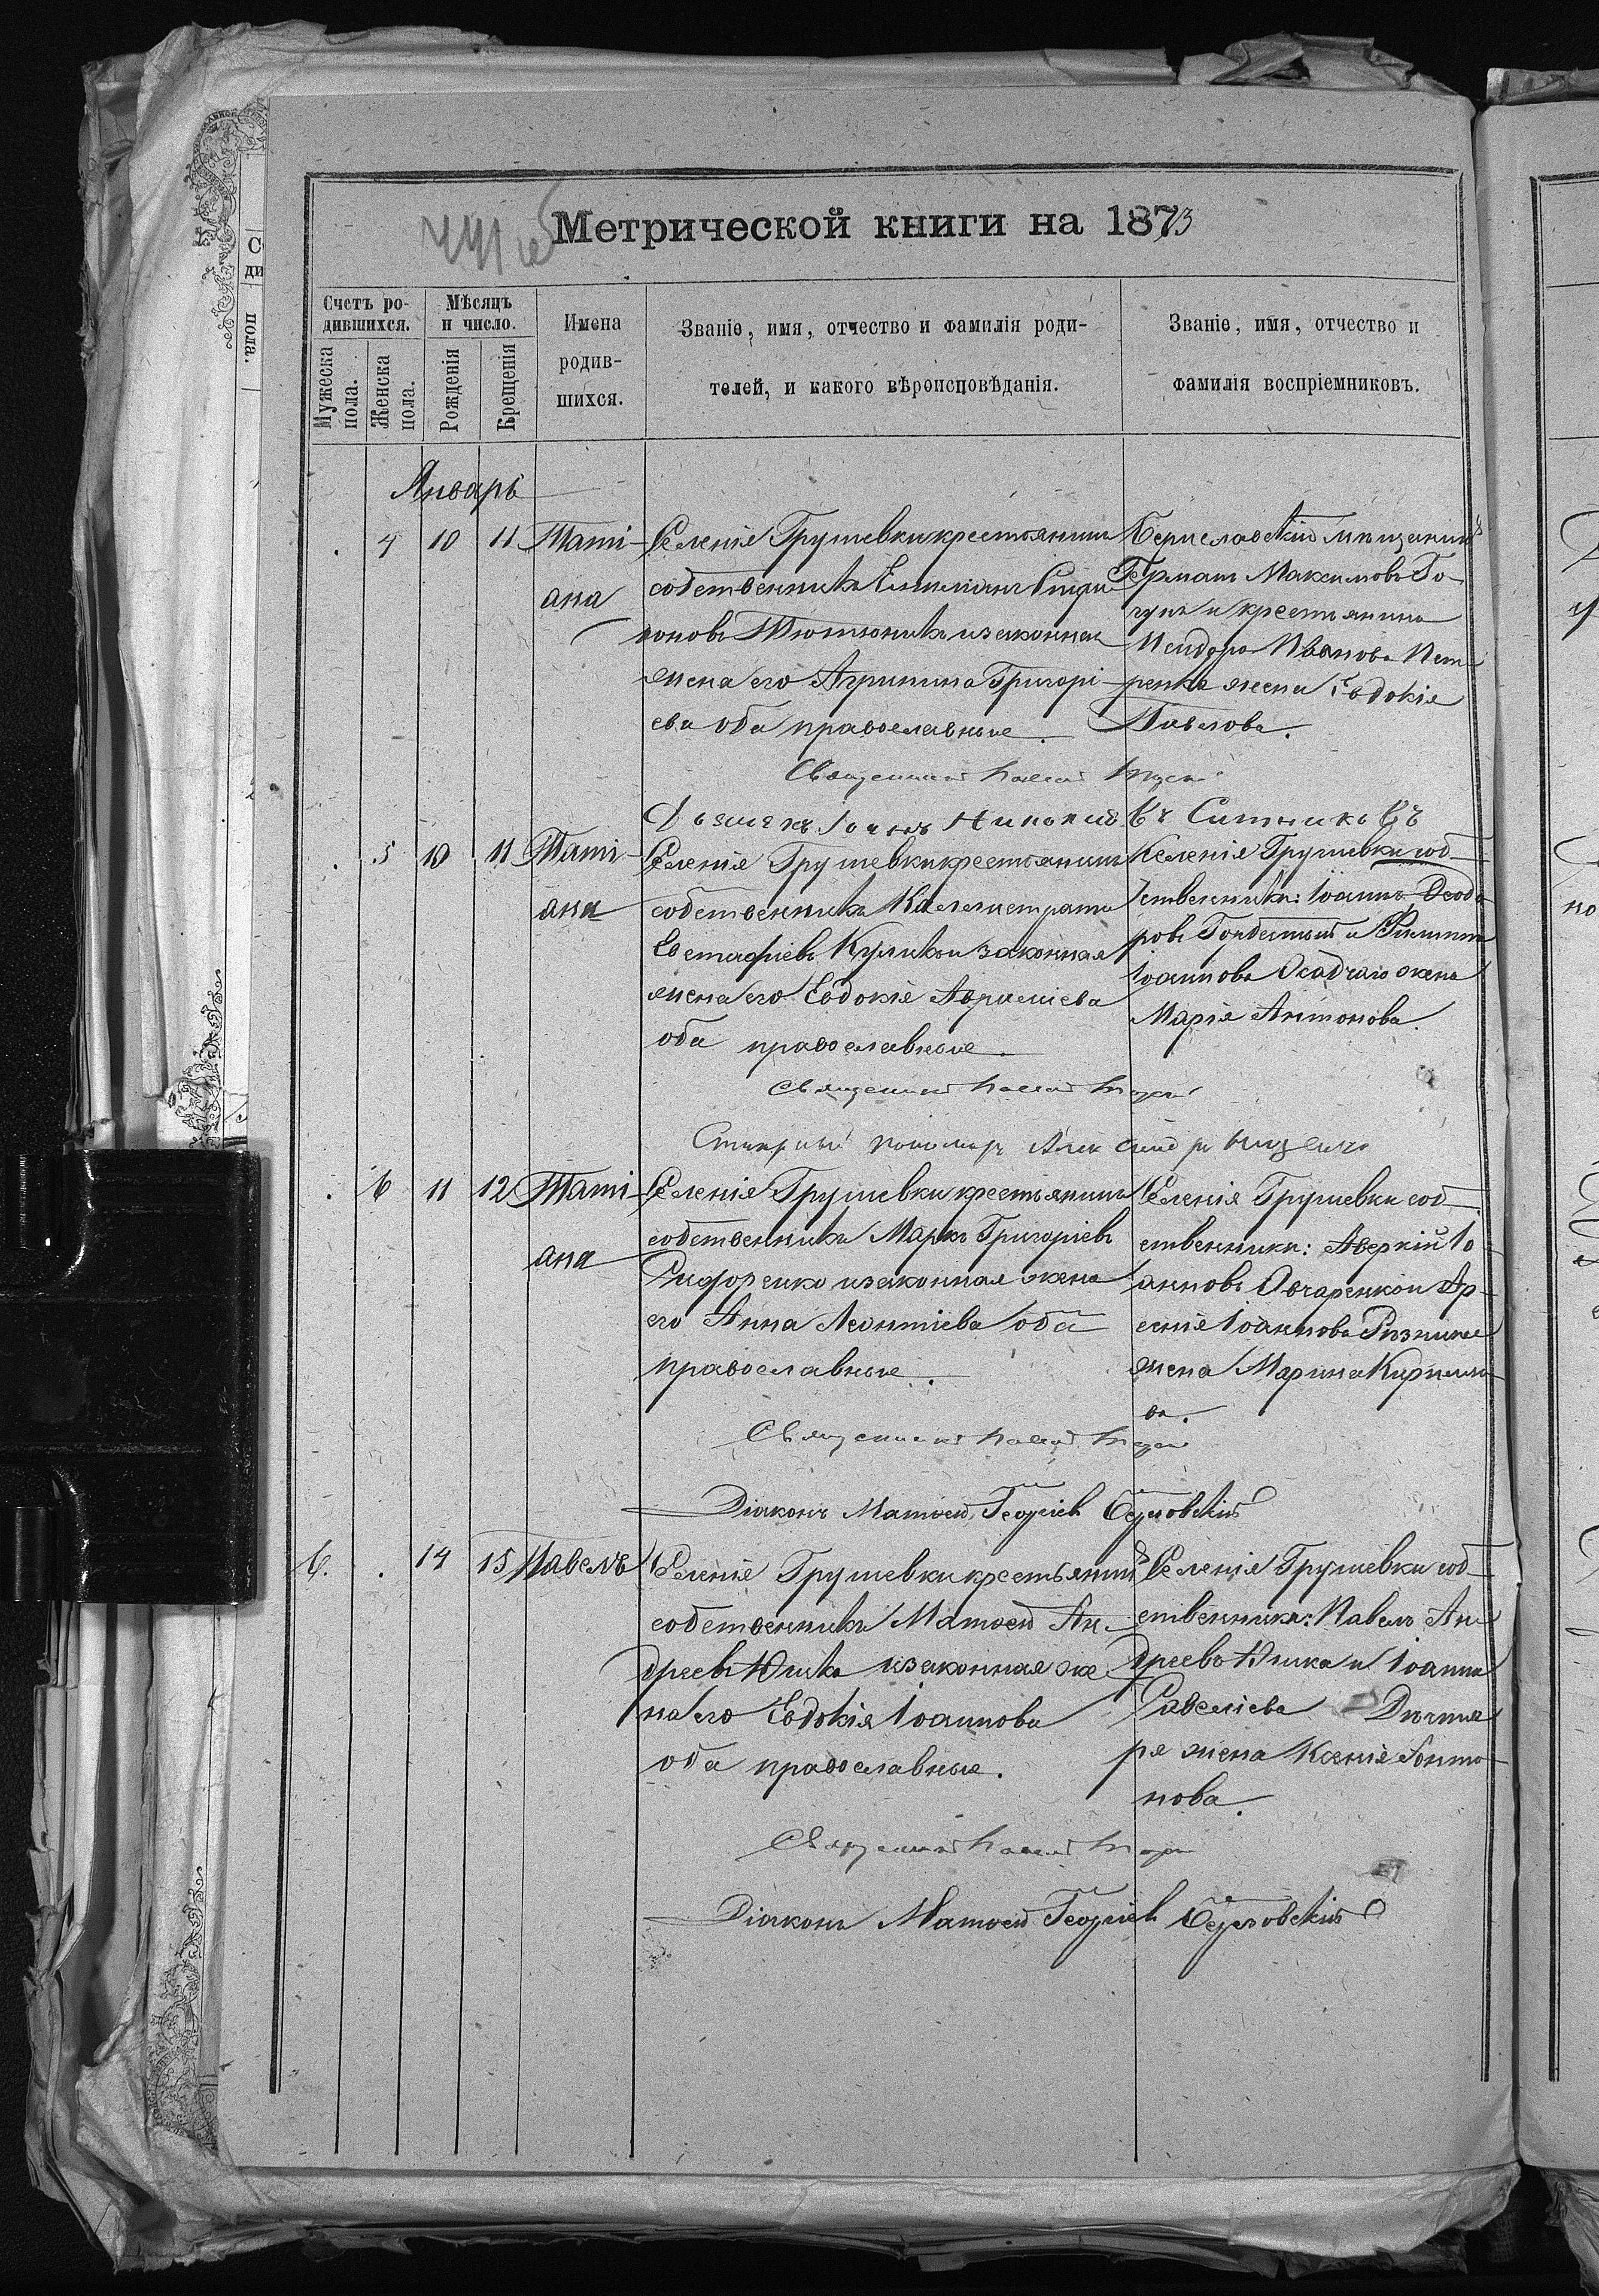 Метрической книги на 1873
Счетъ ро-
дившихся.
Мѣсяцъ
и число.
Мужеска пола.
Женска пола.
Рожденія
Крещенія
Имена
родив-
шихся.
Званіе, имя, отчество и фамилія роди-
телей, и какого вѣроисповѣданія.
Званіе, имя, отчество и
фамилія воспріемниковъ.
Январь
4 10 11 Таті-
ана
Селенія Грушевки крестьянинъ
собственникъ Емиліанъ Спири
доновъ Тютюникъ и законная
жена его Агрипина Григорі-
ева оба православные.
Бериславскій мѣщанинъ
Германъ Максимовъ Го-
гунъ и крестьянина
Исидора Иванова Пет-
ренка жена Евдокія
Павлова.
Священникъ
Дьячекъ Іоаннъ Ситниковъ
5 10 11 Таті-
ана
Селенія Грушевки крестьянинъ
собственникъ Каллистратъ
Евстафіевъ Куликъ и законная
жена его Евдокія
оба православные.
Селенія Грушевки соб-
ственники: Іоаннъ Ѳеодо-
ровъ и Филиппа
Іоаннова Осадчаго жена
Марія Антонова.
Священникъ
пономарь
6 11 12 Таті-
ана
Селенія Грушевки крестьянинъ
собственникъ Маркъ Григоріевъ
Сидоренко и законная жена
его Анна Леонтіева оба
православные.
Селенія Грушевки соб-
ственники: Аверкій Іо-
анновъ Овчаренко и Ар-
сенія Іоаннова
жена Марина Кирилло-
ва.
Священникъ
Діаконъ Матвей Георгіевъ
6. 14 15 Павелъ
Селенія Грушевки крестьянинъ
собственникъ Матвей Ан-
дреевъ Юшка и законная же-
на его Евдокія Іоаннова
оба православные.
Селенія Грушевки соб-
ственники: Павелъ Ан-
дреевъ Юшка и Іоанна
Савеліева Дегтя-
ря жена Ксенія Анто-
нова.
Священникъ
Діаконъ Матвей Георгіевъ